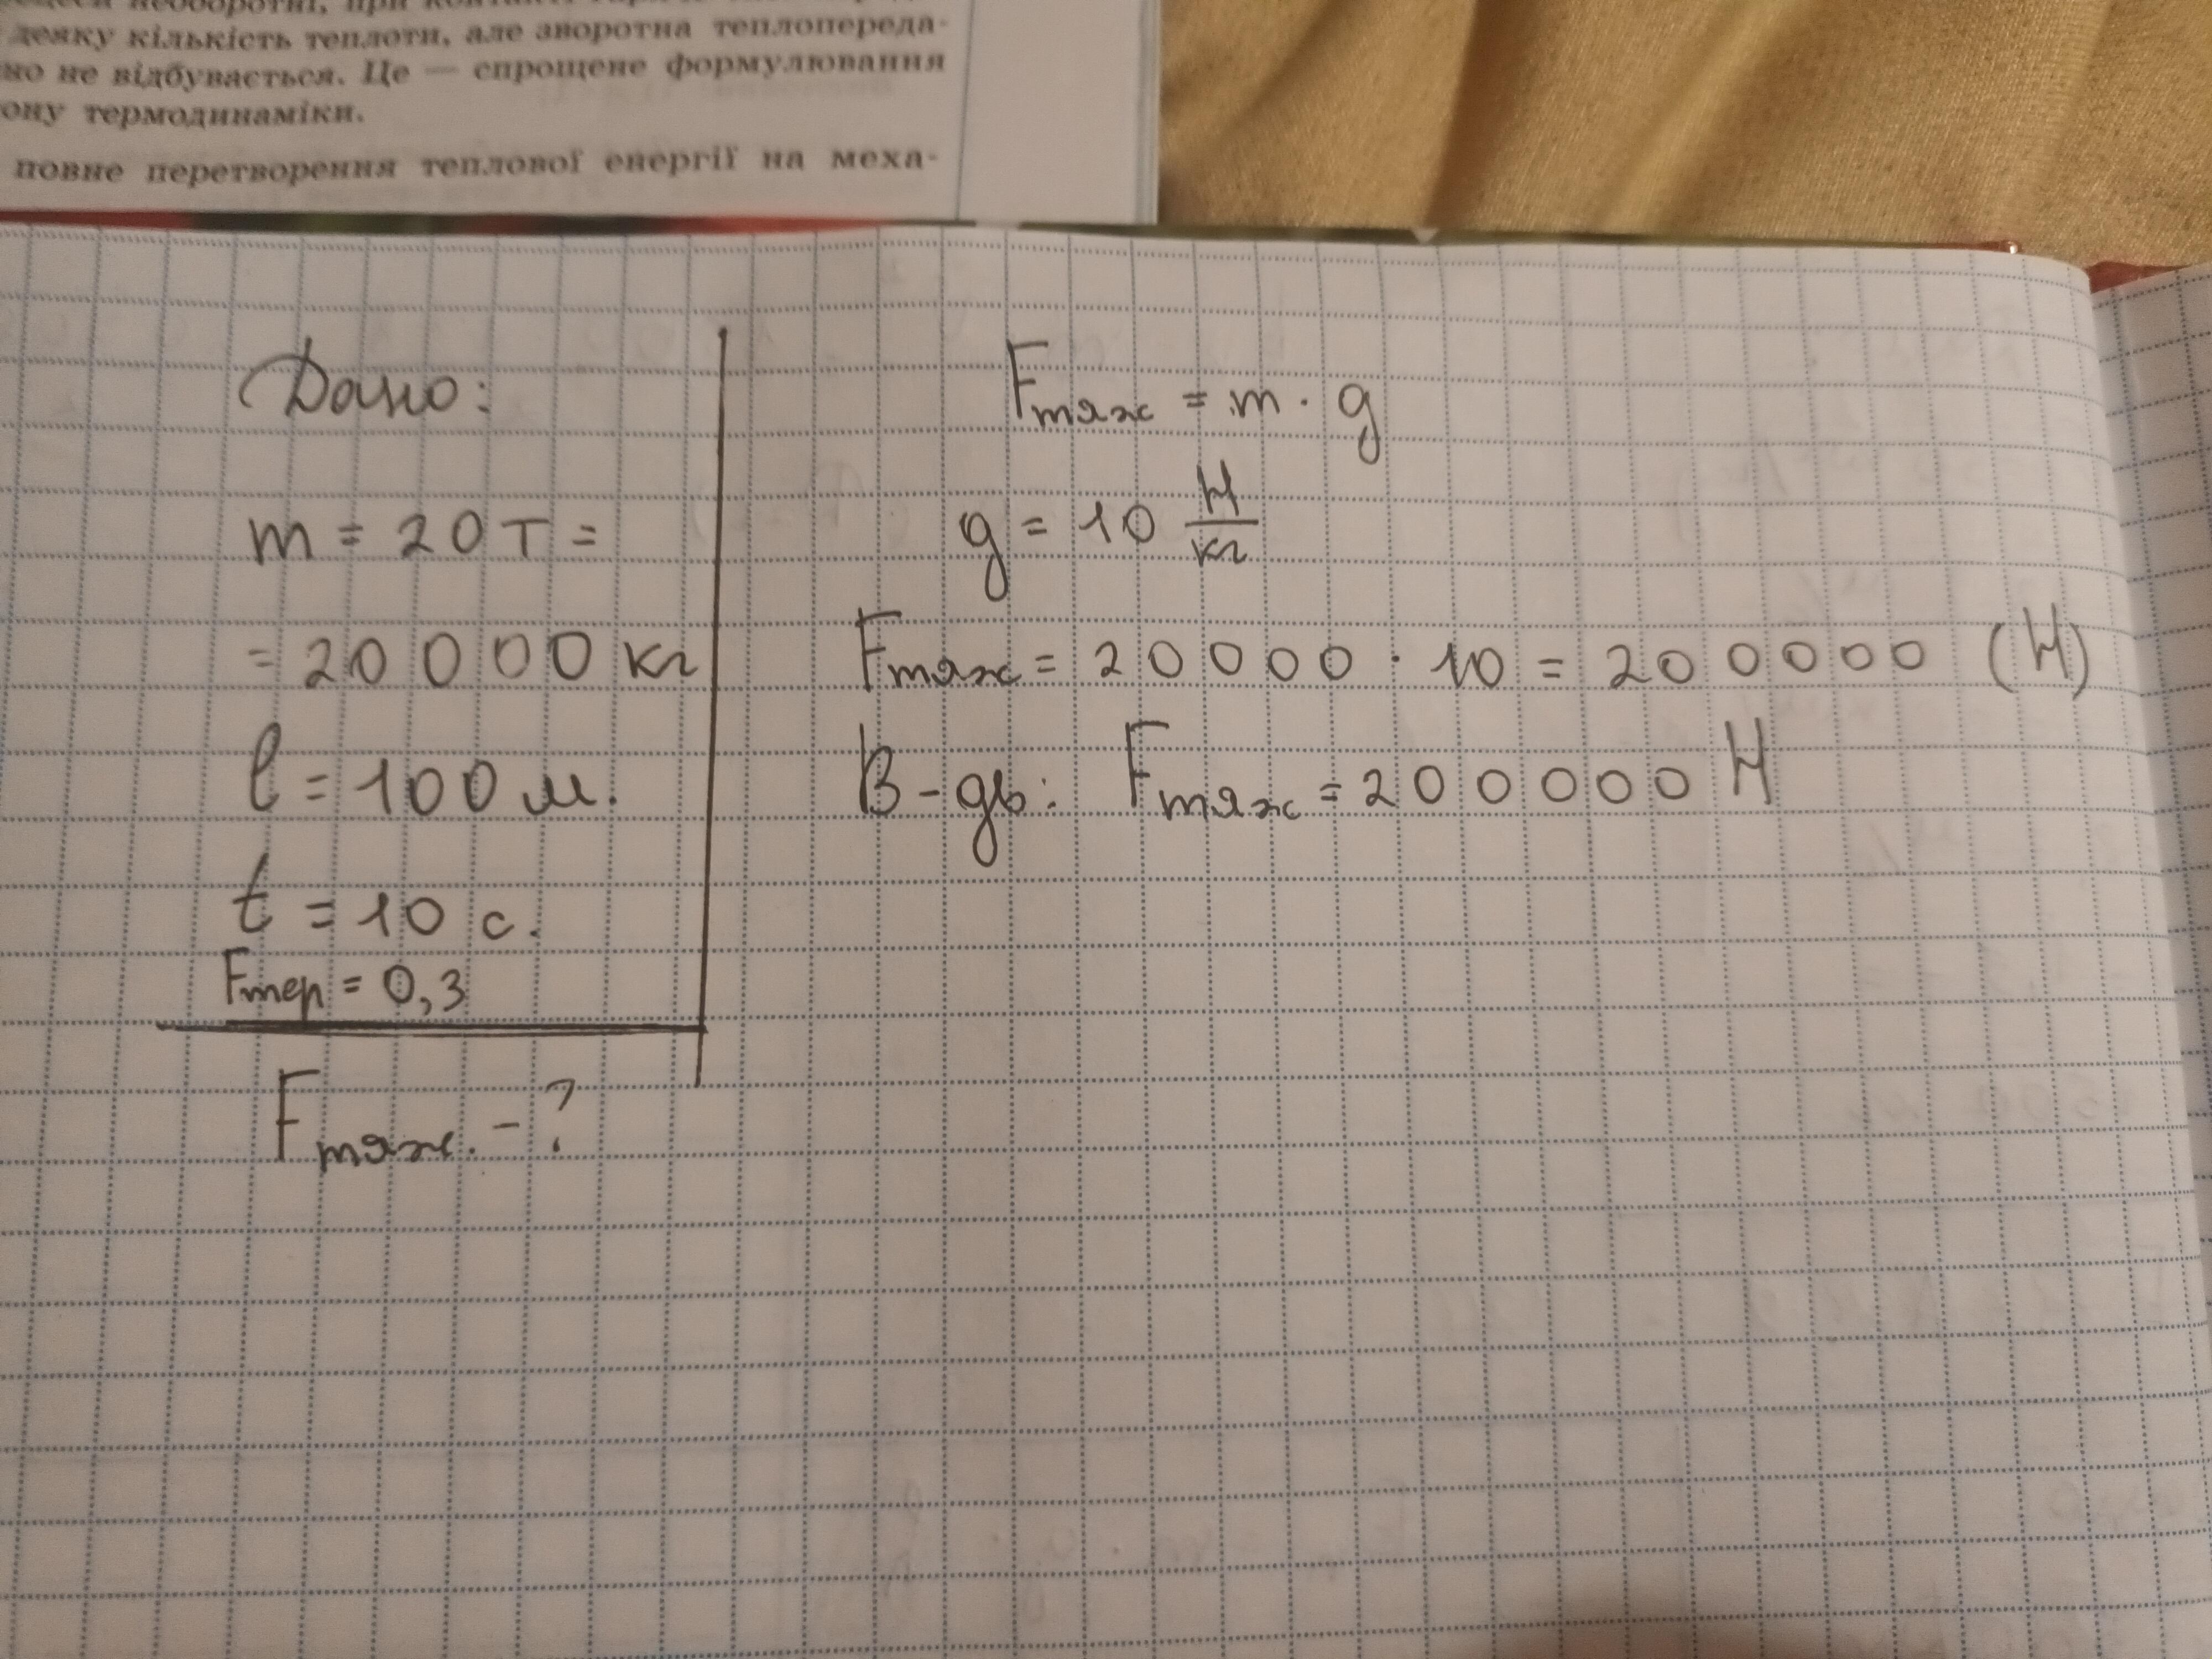 необоротні, при
деяку кількість теплоти, але зворотна теплопереда-
но не відбувається. Це — спрощене формулювання
ону термодинаміки.
повне перетворення теплової енергії на меха-
Дано:
m = 20 т =
= 20 000 кг
l = 100 м.
t = 10 с.
Fтер = 0,3
Fтяж. - ?
Fтяж = m · g
g = 10 Н/кг
Fтяж = 20000 · 10 = 200000 (Н)
В-дь: Fтяж = 200000 Н